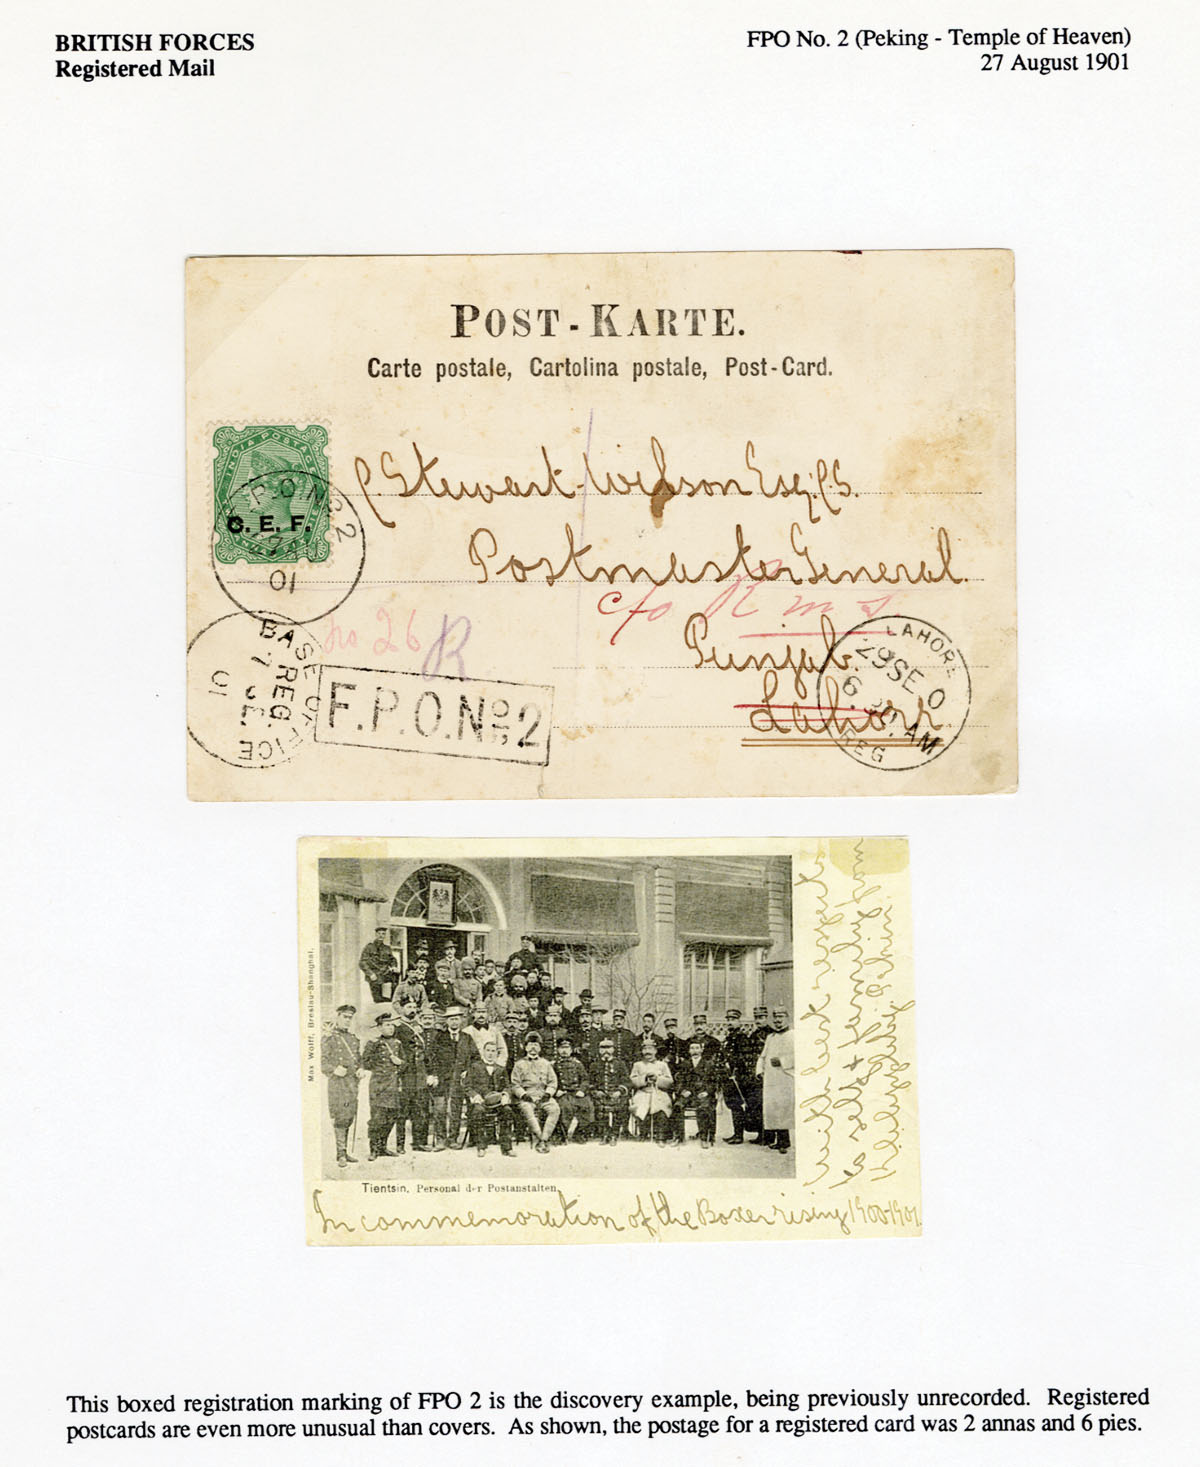 BRITISH FORCES
Registered Mail
FPO No. 2 (Peking - Temple of Heaven)
27 August 1901
POST-KARTE.
Carte postale, Cartolina postale, Post-Card.
INDIA POSTAGE
C. E. F.
F.P.O. No 2
01
C. Stewart-Wilson Esq: C.S.
Postmaster General
c/o R m s
Punjab.
Lahore
No 26
R
BASE OFFICE
REG.
7
SE
01
F.P.O. No 2
LAHORE
29 SE 0
6. AM
REG
Max Wolff, Breslau-Shanghai.
Tientsin, Personal der Postanstalten.
with best regards
to self & family from
Pekin.
In commemoration of the Boxer rising 1900-1901.
This boxed registration marking of FPO 2 is the discovery example, being previously unrecorded. Registered
postcards are even more unusual than covers. As shown, the postage for a registered card was 2 annas and 6 pies.